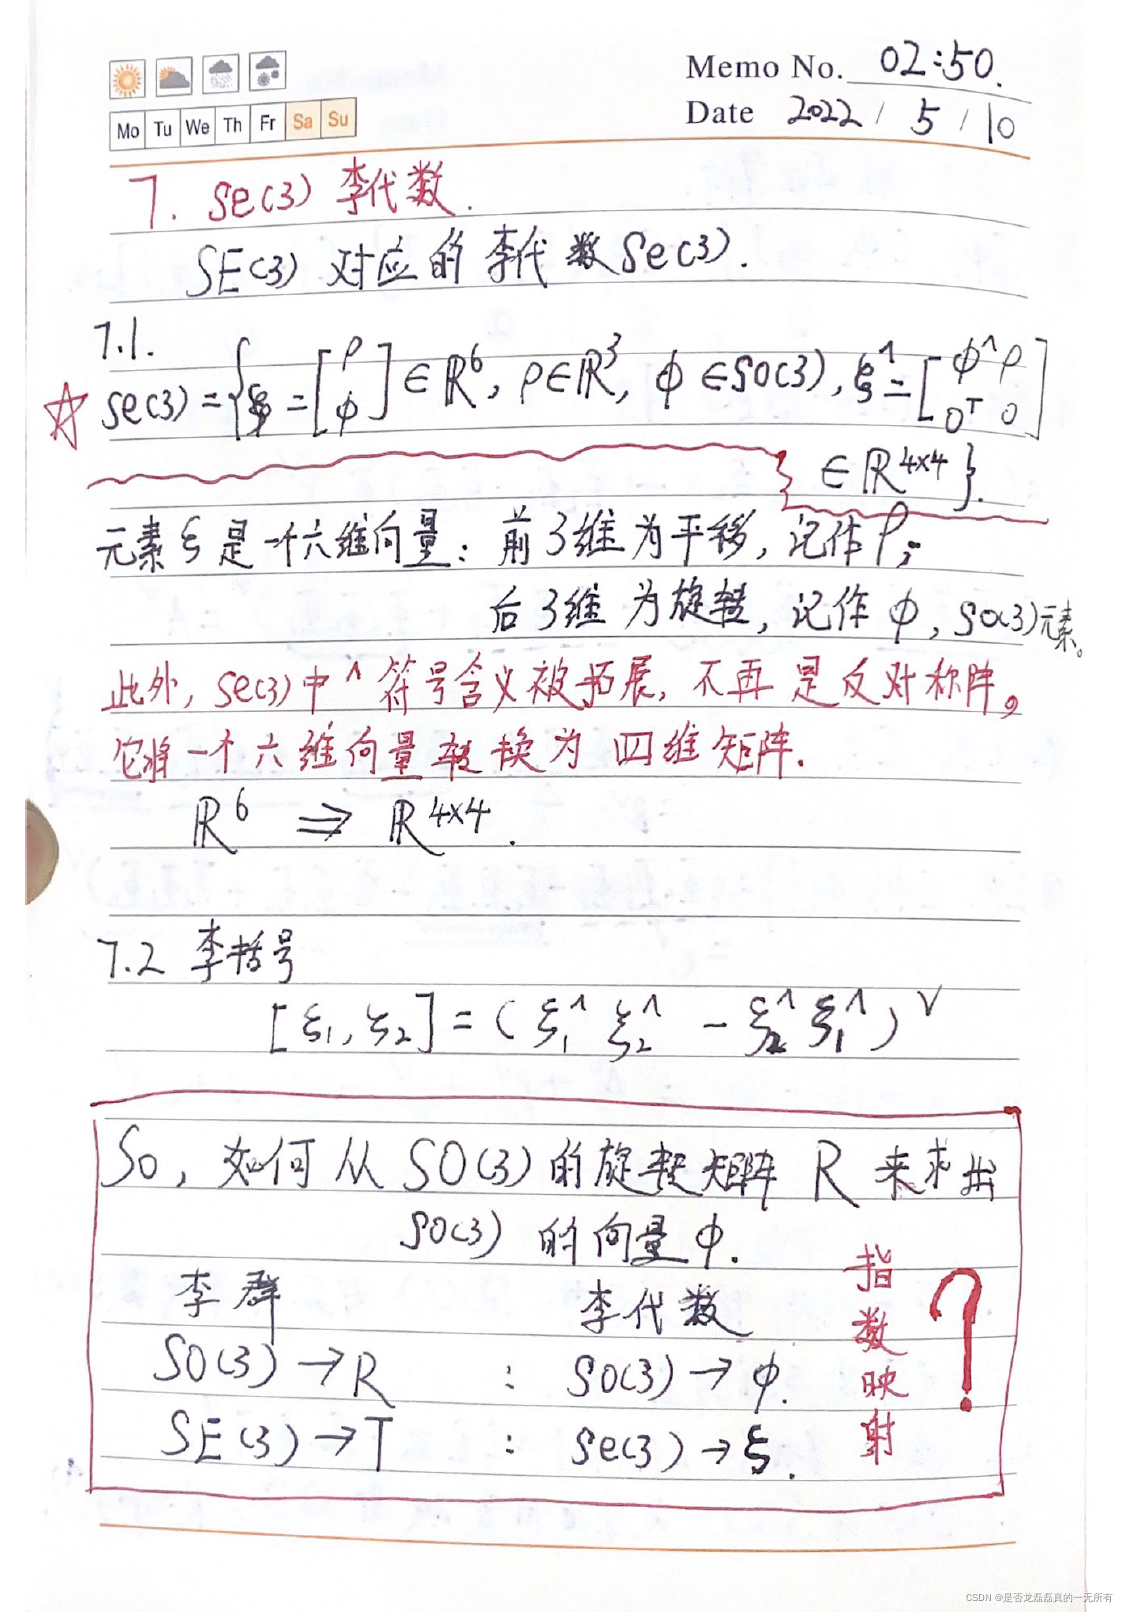 Memo No. 02:50.
Mo Tu We Th Fr Sa Su
Date 2022 / 5 / 10
7. se(3) 李代数.
SE(3) 对应的李代数se(3).
7.1.
se(3) = { ξ = [ρ ϕ] ∈ ℝ⁶, ρ∈ℝ³, ϕ ∈so(3), ξ^ = [ϕ^ ρ 0ᵀ 0]
∈ ℝ⁴ˣ⁴ }.
元素ξ是一个六维向量: 前3维为平移, 记作ρ;
后3维为旋转, 记作 ϕ, so(3)元素。
此外, se(3)中^符号含义被拓展, 不再是反对称阵。
它将一个六维向量转换为四维矩阵.
ℝ⁶ ⇒ ℝ⁴ˣ⁴.
7.2 李括号
[ξ₁, ξ₂] = (ξ₁^ ξ₂^ - ξ₂^ ξ₁^)ᵛ
So, 如何从SO(3)的旋转矩阵 R 来求出
so(3) 的向量ϕ.
李群 李代数
SO(3) → R : so(3) → ϕ.
SE(3) → T : se(3) → ξ.
指数映射 ?
CSDN @是否龙磊磊真的一无所有